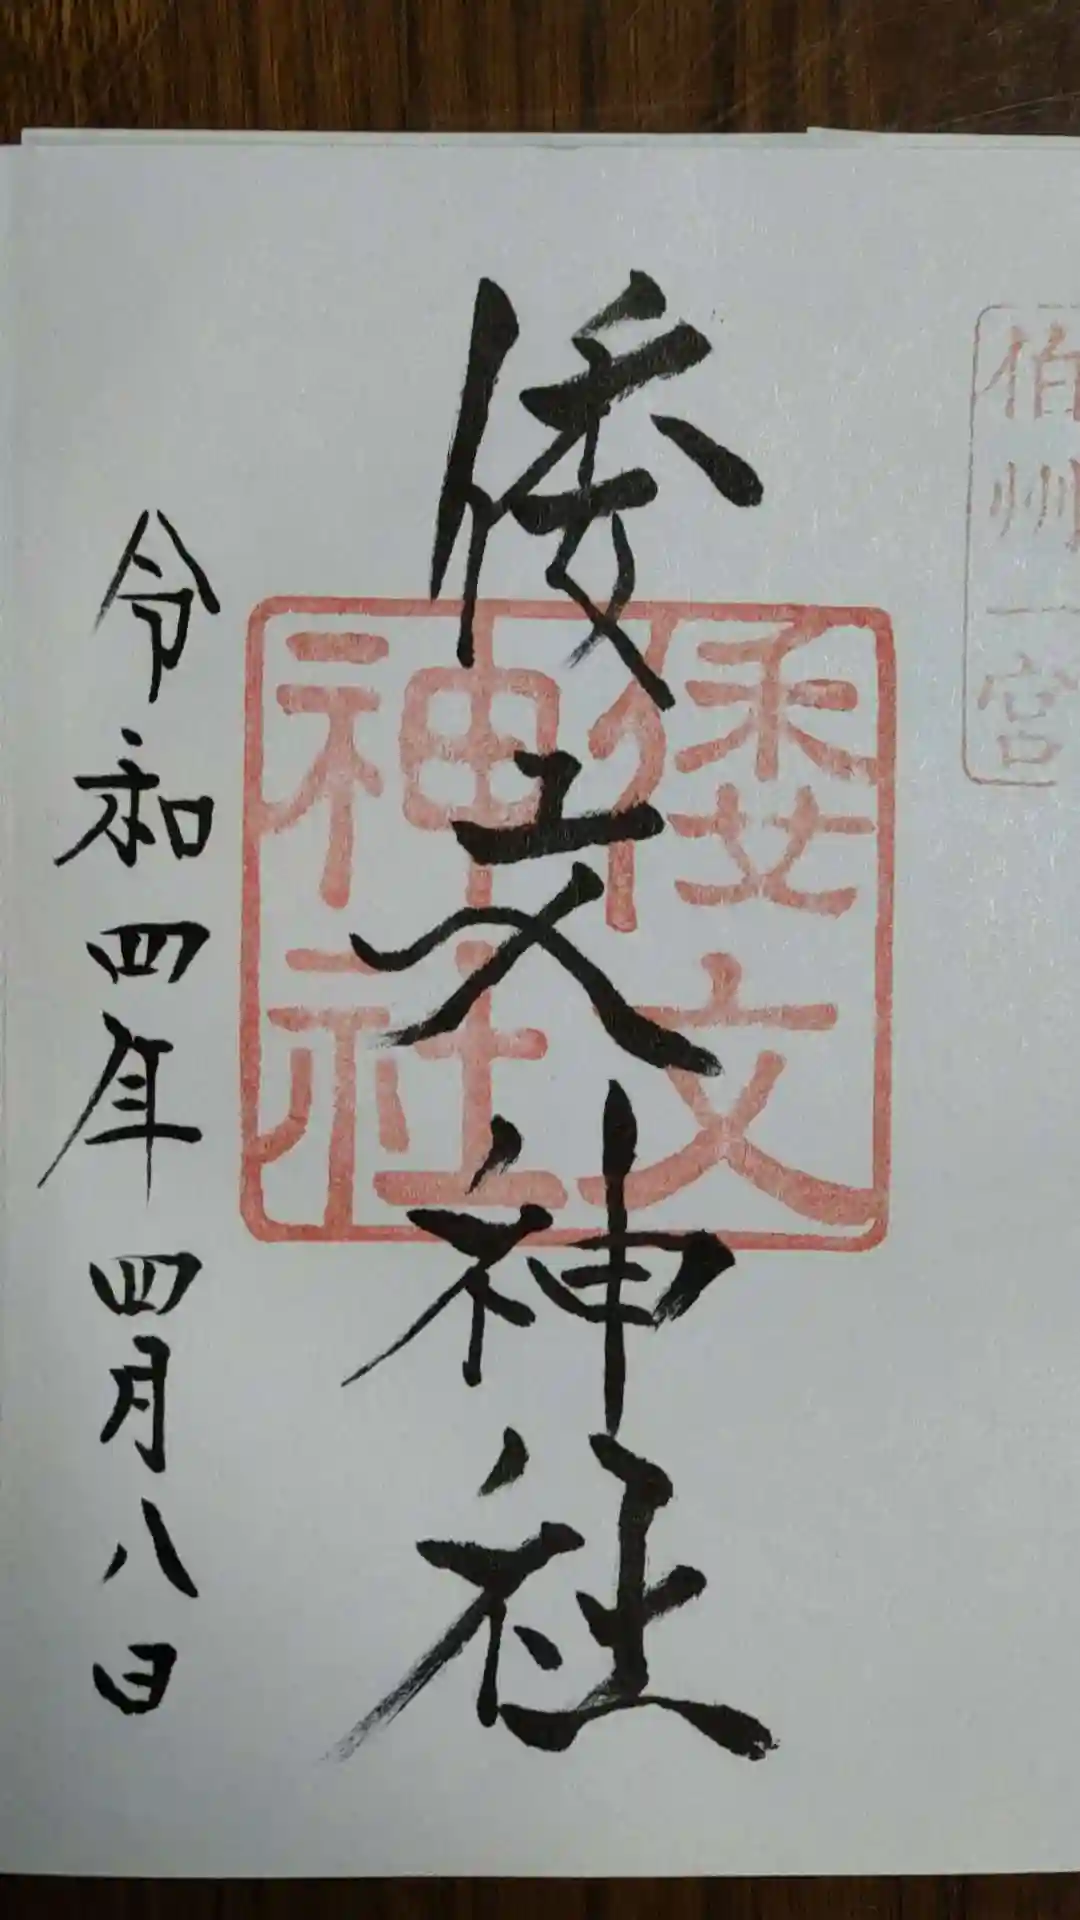 伯州一宮
倭文神社
倭文
神社
令和四年四月八日